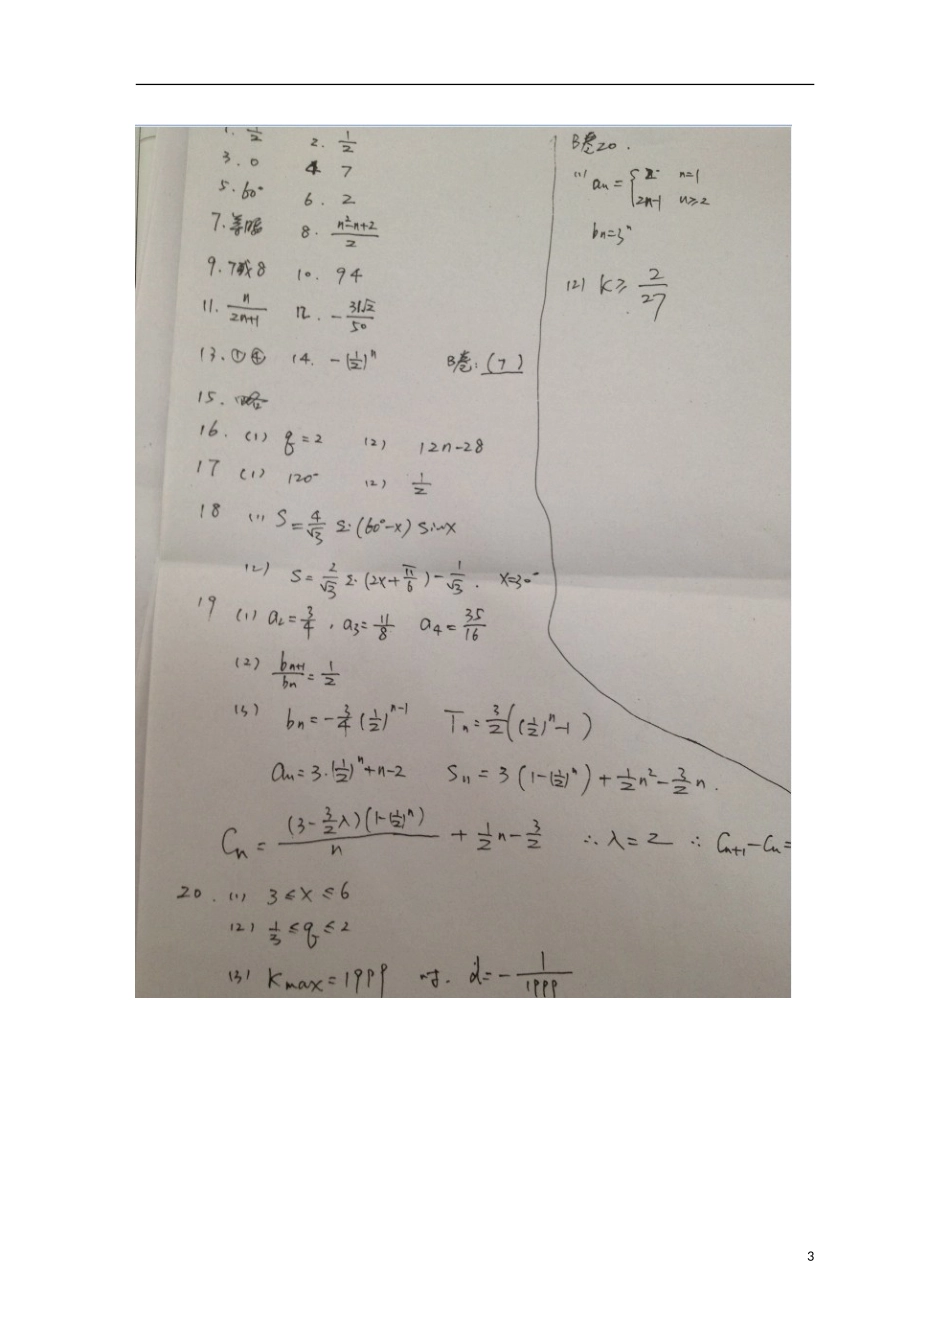 1. 1/2 2. 1/2
3. 0 4 7
5. 60° 6. 2
7. 等腰 8. (n²-n+2)/2
9. 7或8 10. 94
11. n/(2n+1) 12. -31√2/50
13. ①④ 14. -(1/2)ⁿ B卷: (7)
15. 略
16. (1) q=2 (2) 12n-28
17 (1) 120° (2) 1/2
18 (1) S=4/√3 Si(60°-x) sinx
(2) S=2/√3 Si(2x+π/6)-1/√3. x=30°
19 (1) a₂=3/4, a₃=11/8 a₄=35/16
(2) bₙ₊₁/bₙ=1/2
(3) bₙ=-3/4(1/2)ⁿ⁻¹ Tₙ=3/2((1/2)ⁿ-1)
aₙ=3·(1/2)ⁿ+n-2 Sₙ=3(1-(1/2)ⁿ)+1/2n²-3/2n.
Cₙ=(3-3/2λ)(1-(1/2)ⁿ)/n+1/2n-3/2 ∴λ=2 ∴Cₙ₊₁-Cₙ=
20. (1) 3≤x≤6
(2) 1/3≤q≤2
(3) Kmax=1999 时. d=-1/1999
B卷20.
(1) aₙ={2 n=1
2n-1 n≥2
bn=3ⁿ
(2) K≥2/27
3